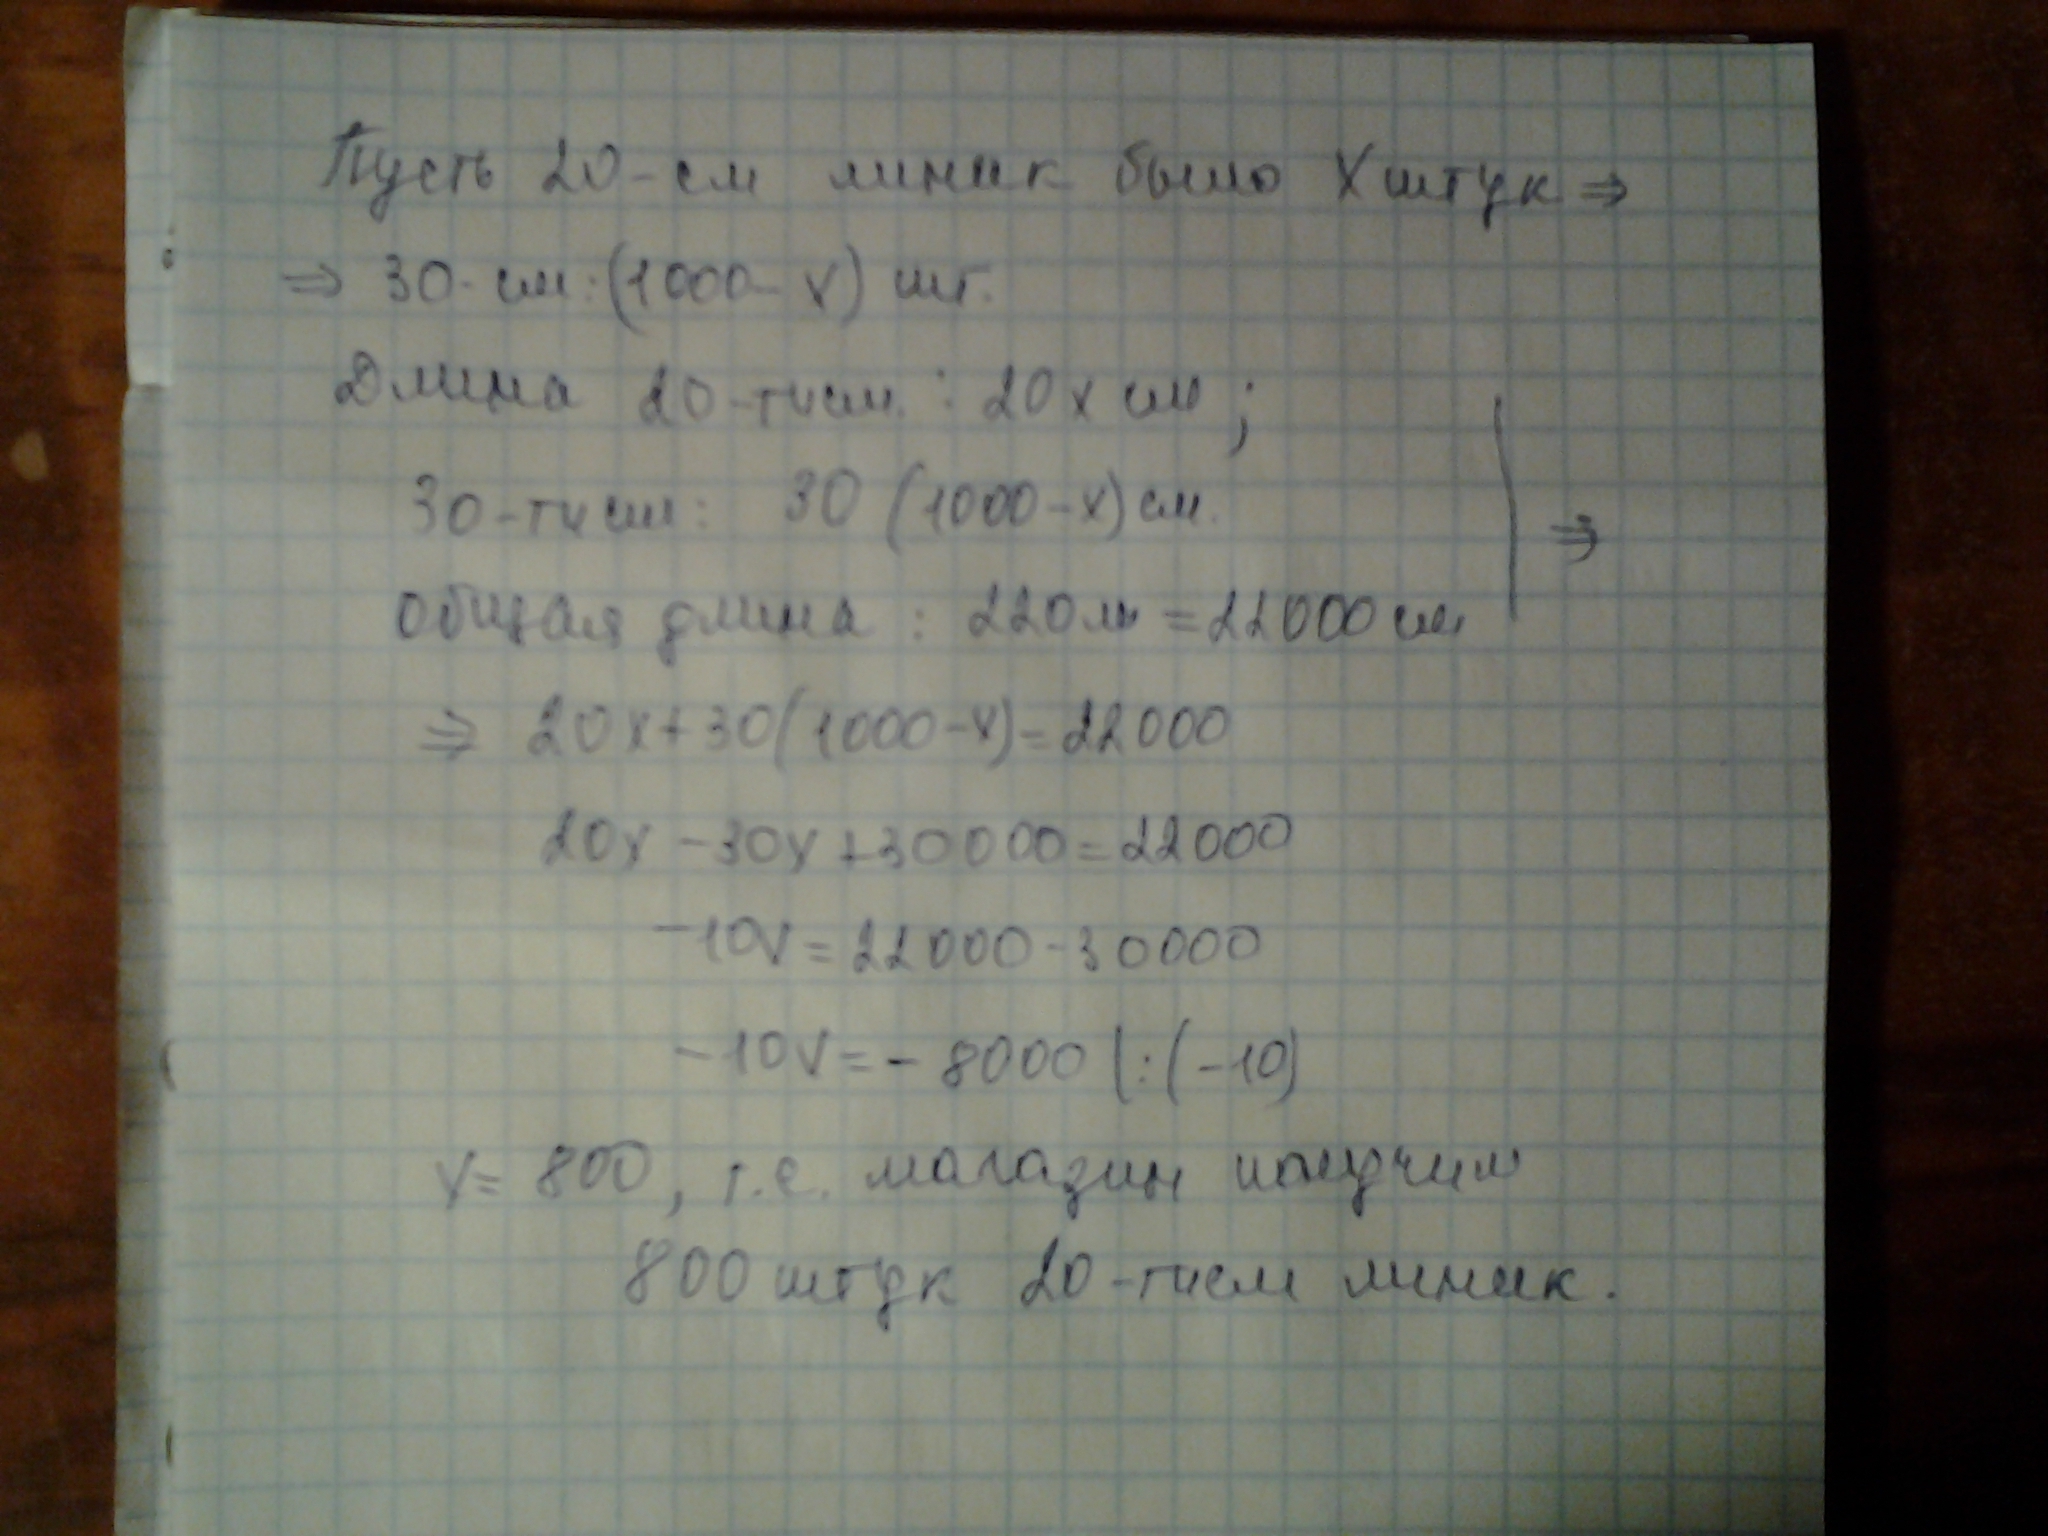 Пусть 20-см линик было X штук ⇒
⇒ 30-см: (1000-x) шт.
Длина 20-тисм. : 20x см ;
30-тисм: 30 (1000-x) см. ⇒
общая длина : 220м = 22000 см
⇒ 20x+30(1000-x)=22000
20x-30x+30000=22000
-10x=22000-30000
-10x=-8000 |:(-10)
x= 800, т.е. магазин получил
800 штук 20-тисм линик.